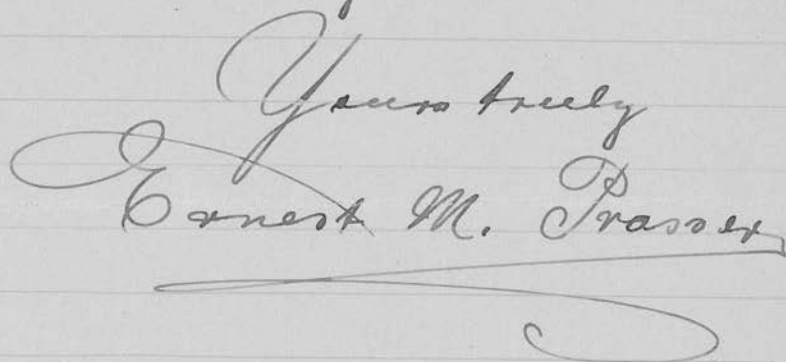 Yours truly
Ernest M. Prasser